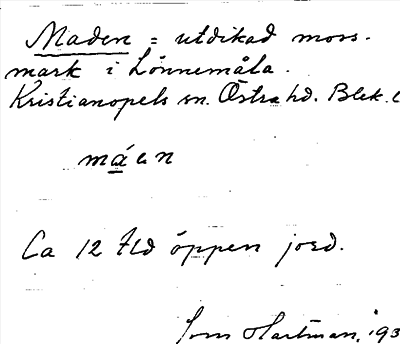 Maden = utdikad moss-
mark i Lönnemåla.
Kristianopels sn. Östra hd. Blek. l
Ca 12 tld öppen jord.
Hartman, 193